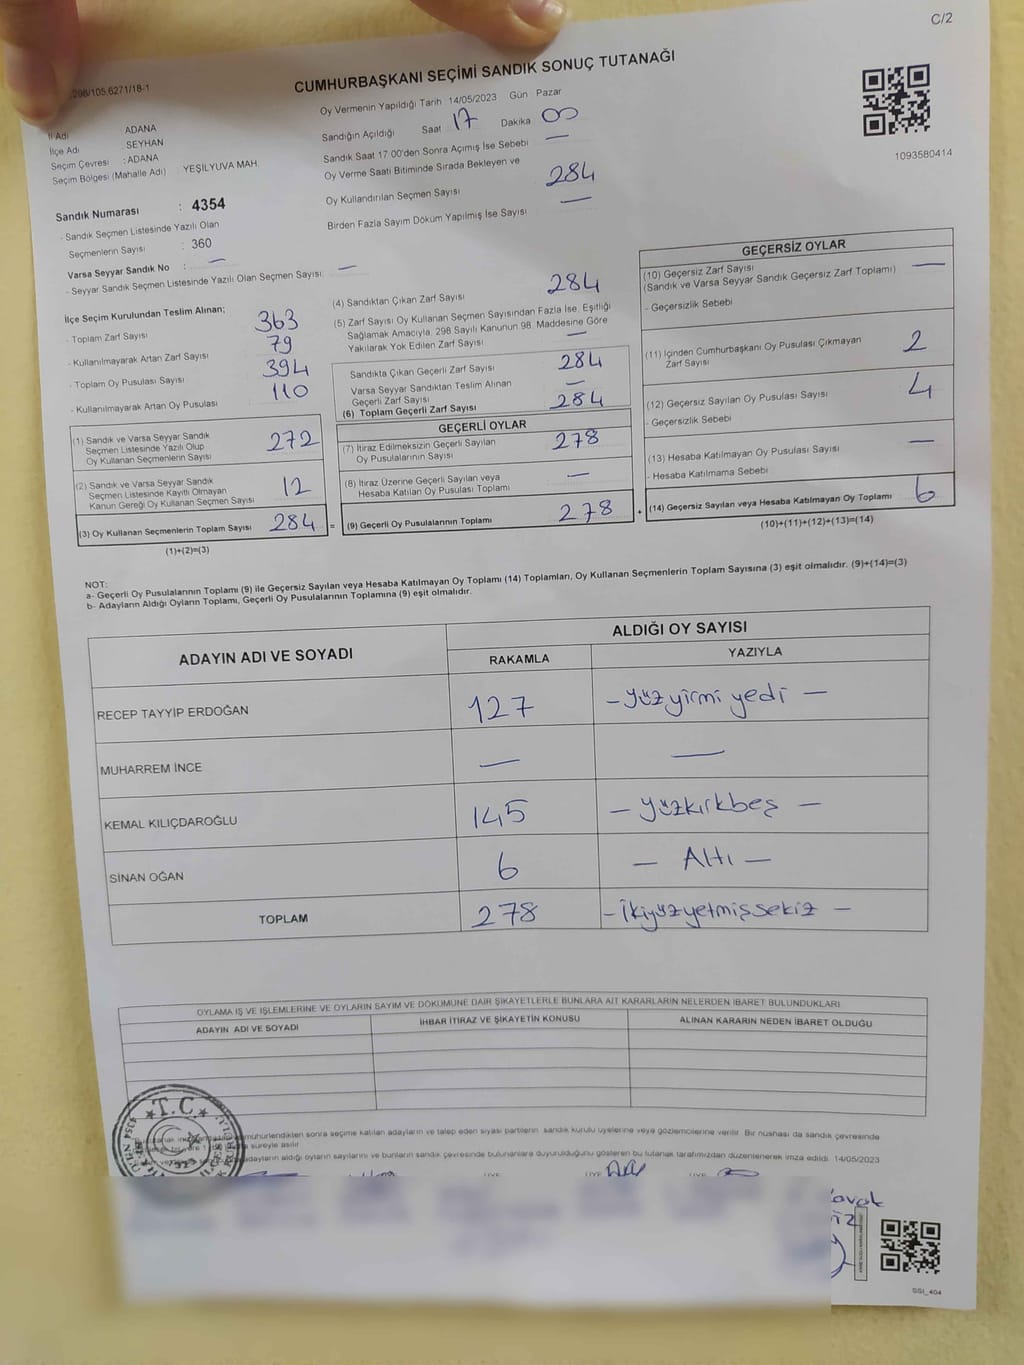 C/2
298/105,6271/18-1
CUMHURBAŞKANI SEÇİMİ SANDIK SONUÇ TUTANAĞI
1093580414
İl Adı : ADANA
İlçe Adı : SEYHAN
Seçim Çevresi : ADANA
Seçim Bölgesi (Mahalle Adı) : YEŞİLYUVA MAH.
Sandık Numarası : 4354
- Sandık Seçmen Listesinde Yazılı Olan
Seçmenlerin Sayısı : 360
Varsa Seyyar Sandık No : —
- Seyyar Sandık Seçmen Listesinde Yazılı Olan Seçmen Sayısı: —
Oy Vermenin Yapıldığı Tarih 14/05/2023 Gün Pazar
Sandığın Açıldığı Saat 17 Dakika 00
Sandık Saat 17:00'den Sonra Açımış İse Sebebi —
Oy Verme Saati Bitiminde Sırada Bekleyen ve
Oy Kullandırılan Seçmen Sayısı 284
Birden Fazla Sayım Döküm Yapılmış İse Sayısı —
İlçe Seçim Kurulundan Teslim Alınan;
- Toplam Zarf Sayısı 363
- Kullanılmayarak Artan Zarf Sayısı 79
- Toplam Oy Pusulası Sayısı 394
- Kullanılmayarak Artan Oy Pusulası 110
(1) Sandık ve Varsa Seyyar Sandık
Seçmen Listesinde Yazılı Olup
Oy Kullanan Seçmenlerin Sayısı 272
(2) Sandık ve Varsa Seyyar Sandık
Seçmen Listesinde Kayıtlı Olmayan
Kanun Gereği Oy Kullanan Seçmen Sayısı 12
(3) Oy Kullanan Seçmenlerin Toplam Sayısı 284 =
(1)+(2)=(3)
(4) Sandıktan Çıkan Zarf Sayısı 284
(5) Zarf Sayısı Oy Kullanan Seçmen Sayısından Fazla İse, Eşitliği
Sağlamak Amacıyla, 298 Sayılı Kanunun 98. Maddesine Göre
Yakılarak Yok Edilen Zarf Sayısı —
Sandıkta Çıkan Geçerli Zarf Sayısı 284
Varsa Seyyar Sandıktan Teslim Alınan
Geçerli Zarf Sayısı —
(6) Toplam Geçerli Zarf Sayısı 284
GEÇERLİ OYLAR
(7) İtiraz Edilmeksizin Geçerli Sayılan
Oy Pusulalarının Sayısı 278
(8) İtiraz Üzerine Geçerli Sayılan veya
Hesaba Katılan Oy Pusulası Toplamı —
(9) Geçerli Oy Pusulalarının Toplamı 278 +
GEÇERSİZ OYLAR
(10) Geçersiz Zarf Sayısı
(Sandık ve Varsa Seyyar Sandık Geçersiz Zarf Toplamı) —
- Geçersizlik Sebebi
(11) İçinden Cumhurbaşkanı Oy Pusulası Çıkmayan
Zarf Sayısı 2
(12) Geçersiz Sayılan Oy Pusulası Sayısı 4
- Geçersizlik Sebebi
(13) Hesaba Katılmayan Oy Pusulası Sayısı —
- Hesaba Katılmama Sebebi
(14) Geçersiz Sayılan veya Hesaba Katılmayan Oy Toplamı 6
(10)+(11)+(12)+(13)=(14)
NOT:
a- Geçerli Oy Pusulalarının Toplamı (9) ile Geçersiz Sayılan veya Hesaba Katılmayan Oy Toplamı (14) Toplamları, Oy Kullanan Seçmenlerin Toplam Sayısına (3) eşit olmalıdır. (9)+(14)=(3)
b- Adayların Aldığı Oyların Toplamı, Geçerli Oy Pusulalarının Toplamına (9) eşit olmalıdır.
ADAYIN ADI VE SOYADI ALDIĞI OY SAYISI
RAKAMLA YAZIYLA
RECEP TAYYİP ERDOĞAN 127 -Yüzyirmi yedi —
MUHARREM İNCE — —
KEMAL KILIÇDAROĞLU 145 — Yüzkırkbeş —
SİNAN OĞAN 6 — Altı —
TOPLAM 278 -İkiyüzyetmişsekiz —
OYLAMA İŞ VE İŞLEMLERİNE VE OYLARIN SAYIM VE DÖKÜMÜNE DAİR ŞİKAYETLERLE BUNLARA AİT KARARLARIN NELERDEN İBARET BULUNDUKLARI
ADAYIN ADI VE SOYADI İHBAR İTİRAZ VE ŞİKAYETİN KONUSU ALINAN KARARIN NEDEN İBARET OLDUĞU
mühürlendikten sonra seçime katılan adayların ve talep eden siyasi partilerin sandık kurulu üyelerine veya gözlemcilerine verilir. Bir nüshası da sandık çevresinde
süreyle asılır.
adayların aldığı oyların sayılarını ve bunların sandık çevresinde bulunanlara duyurulduğunu gösteren bu tutanak tarafımızdan düzenlenerek imza edildi. 14/05/2023
T.C.
4354
SSI_404